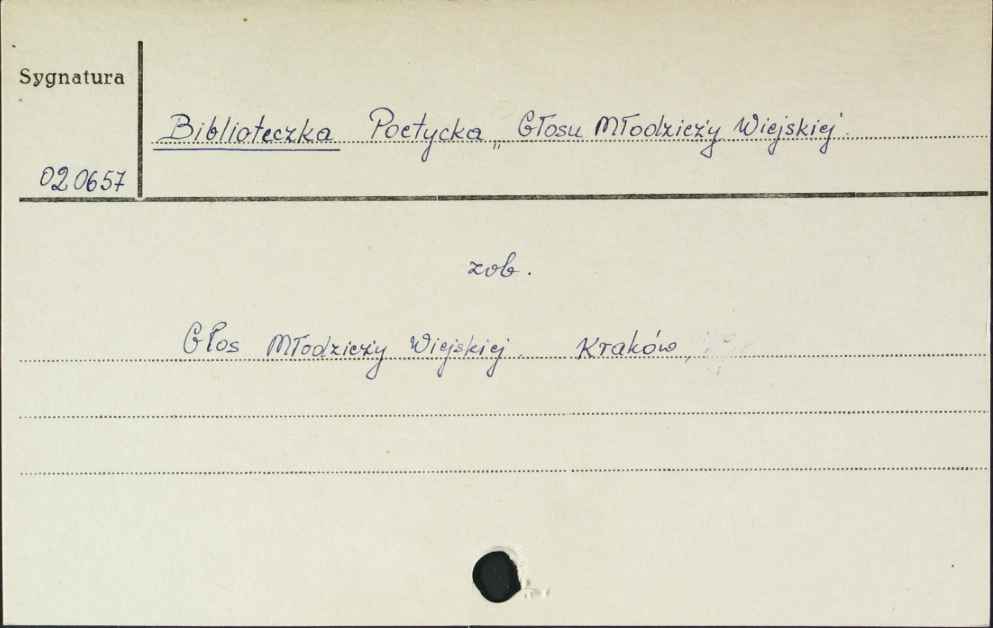 Sygnatura
Biblioteczka Poetycka „Głosu Młodzieży Wiejskiej"
020657
zob.
Głos Młodzieży Wiejskiej. Kraków,